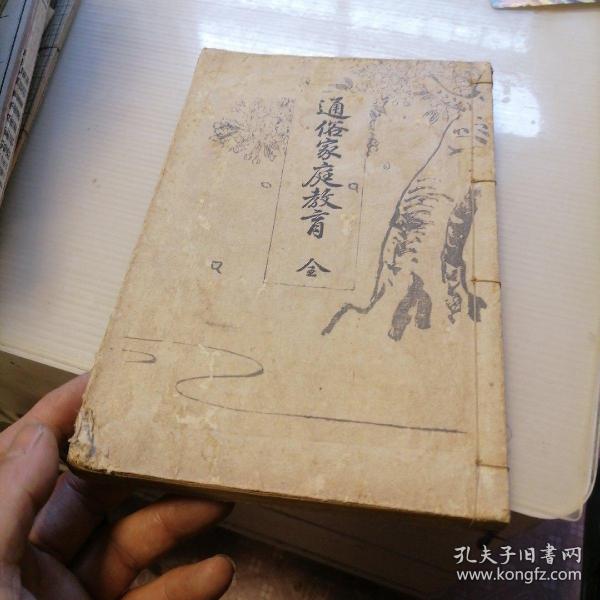 通俗家庭教育 全
孔夫子旧書网
www.kongfz.com